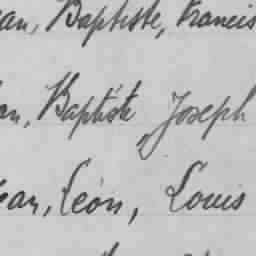 ean, Baptiste, Francis
an, Baptiste, Joseph
ean, Léon, Louis